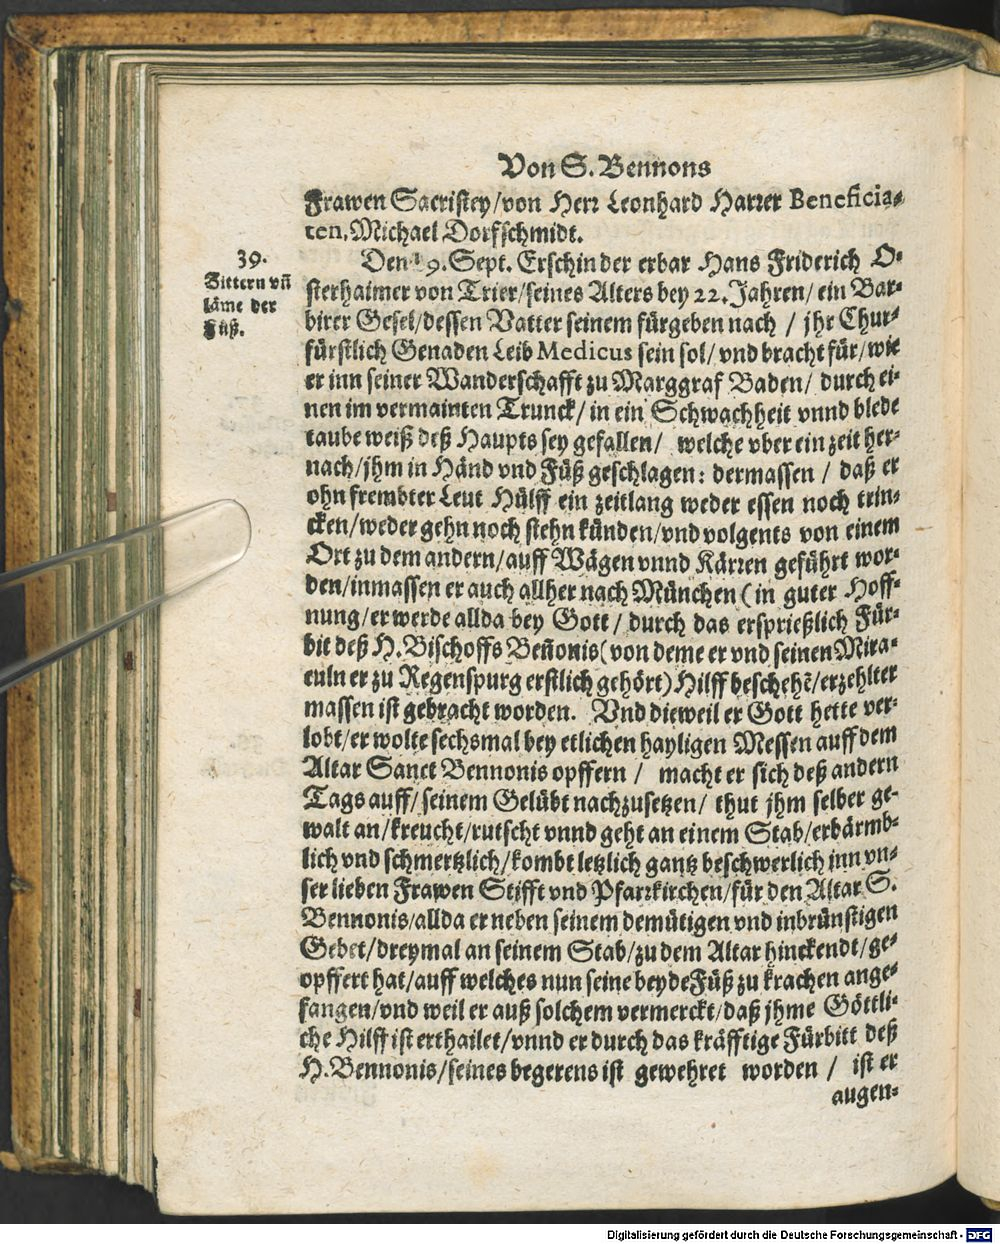 Von S. Bennons
Frawen Sacristey/von Herr Leonhard Harrer Beneficia-
ten, Michael Dorfschmidt.
39.
Zittern vñ
läme der
Füß.
Den 19. Sept. Erschin der erbar Hans Friderich O-
sterhaimer von Trier/seines Alters bey 22. Jahren/ ein Bar-
birer Gesel/dessen Vatter seinem fürgeben nach / jhr Chur-
fürstlich Genaden Leib Medicus sein sol/ vnd bracht für/ wie
er inn seiner Wanderschafft zu Marggraf Baden/ durch ei-
nen im vermainten Trunck/ in ein Schwachheit vnnd blede
taube weiß deß Haupts sey gefallen/ welche vber ein zeit her-
nach/jhm in Händ vnd Füß geschlagen: dermassen / daß er
ohn frembter Leut Hülff ein zeitlang weder essen noch trin-
cken/weder gehn noch stehn künden/vnd volgents von einem
Ort zu dem andern/auff Wägen vnnd Kärren geführt wor-
den/inmassen er auch allher nach München (in guter Hoff-
nung/er werde allda bey Gott / durch das ersprießlich Für-
bit deß H. Bischoffs Beñonis(von deme er vnd seinen Mira-
culn er zu Regenspurg erstlich gehört) Hilff beschehẽ/erzehlter
massen ist gebracht worden. Vnd dieweil er Gott hette ver-
lobt/er wolte sechsmal bey etlichen hayligen Messen auff dem
Altar Sanct Bennonis opffern / macht er sich deß andern
Tags auff/seinem Gelübt nachzusetzen/ thut jhm selber ge-
walt an/kreucht/rutscht vnnd geht an einem Stab/erbärmb-
lich vnd schmertzlich/kombt letzlich gantz beschwerlich inn vn-
ser lieben Frawen Stifft vnd Pfarrkirchen/für den Altar S.
Bennonis/allda er neben seinem demütigen vnd inbrünstigen
Gebet/dreymal an seinem Stab/zu dem Altar hinckendt/ge-
opffert hat/auff welches nun seine beyde Füß zu krachen ange-
fangen/vnd weil er auß solchem vermerckt/daß jhme Göttli-
che Hilff ist erthailet/vnnd er durch das kräfftige Fürbitt deß
H. Bennonis/seines begerens ist gewehret worden / ist er
augen-
Digitalisierung gefördert durch die Deutsche Forschungsgemeinschaft - DFG